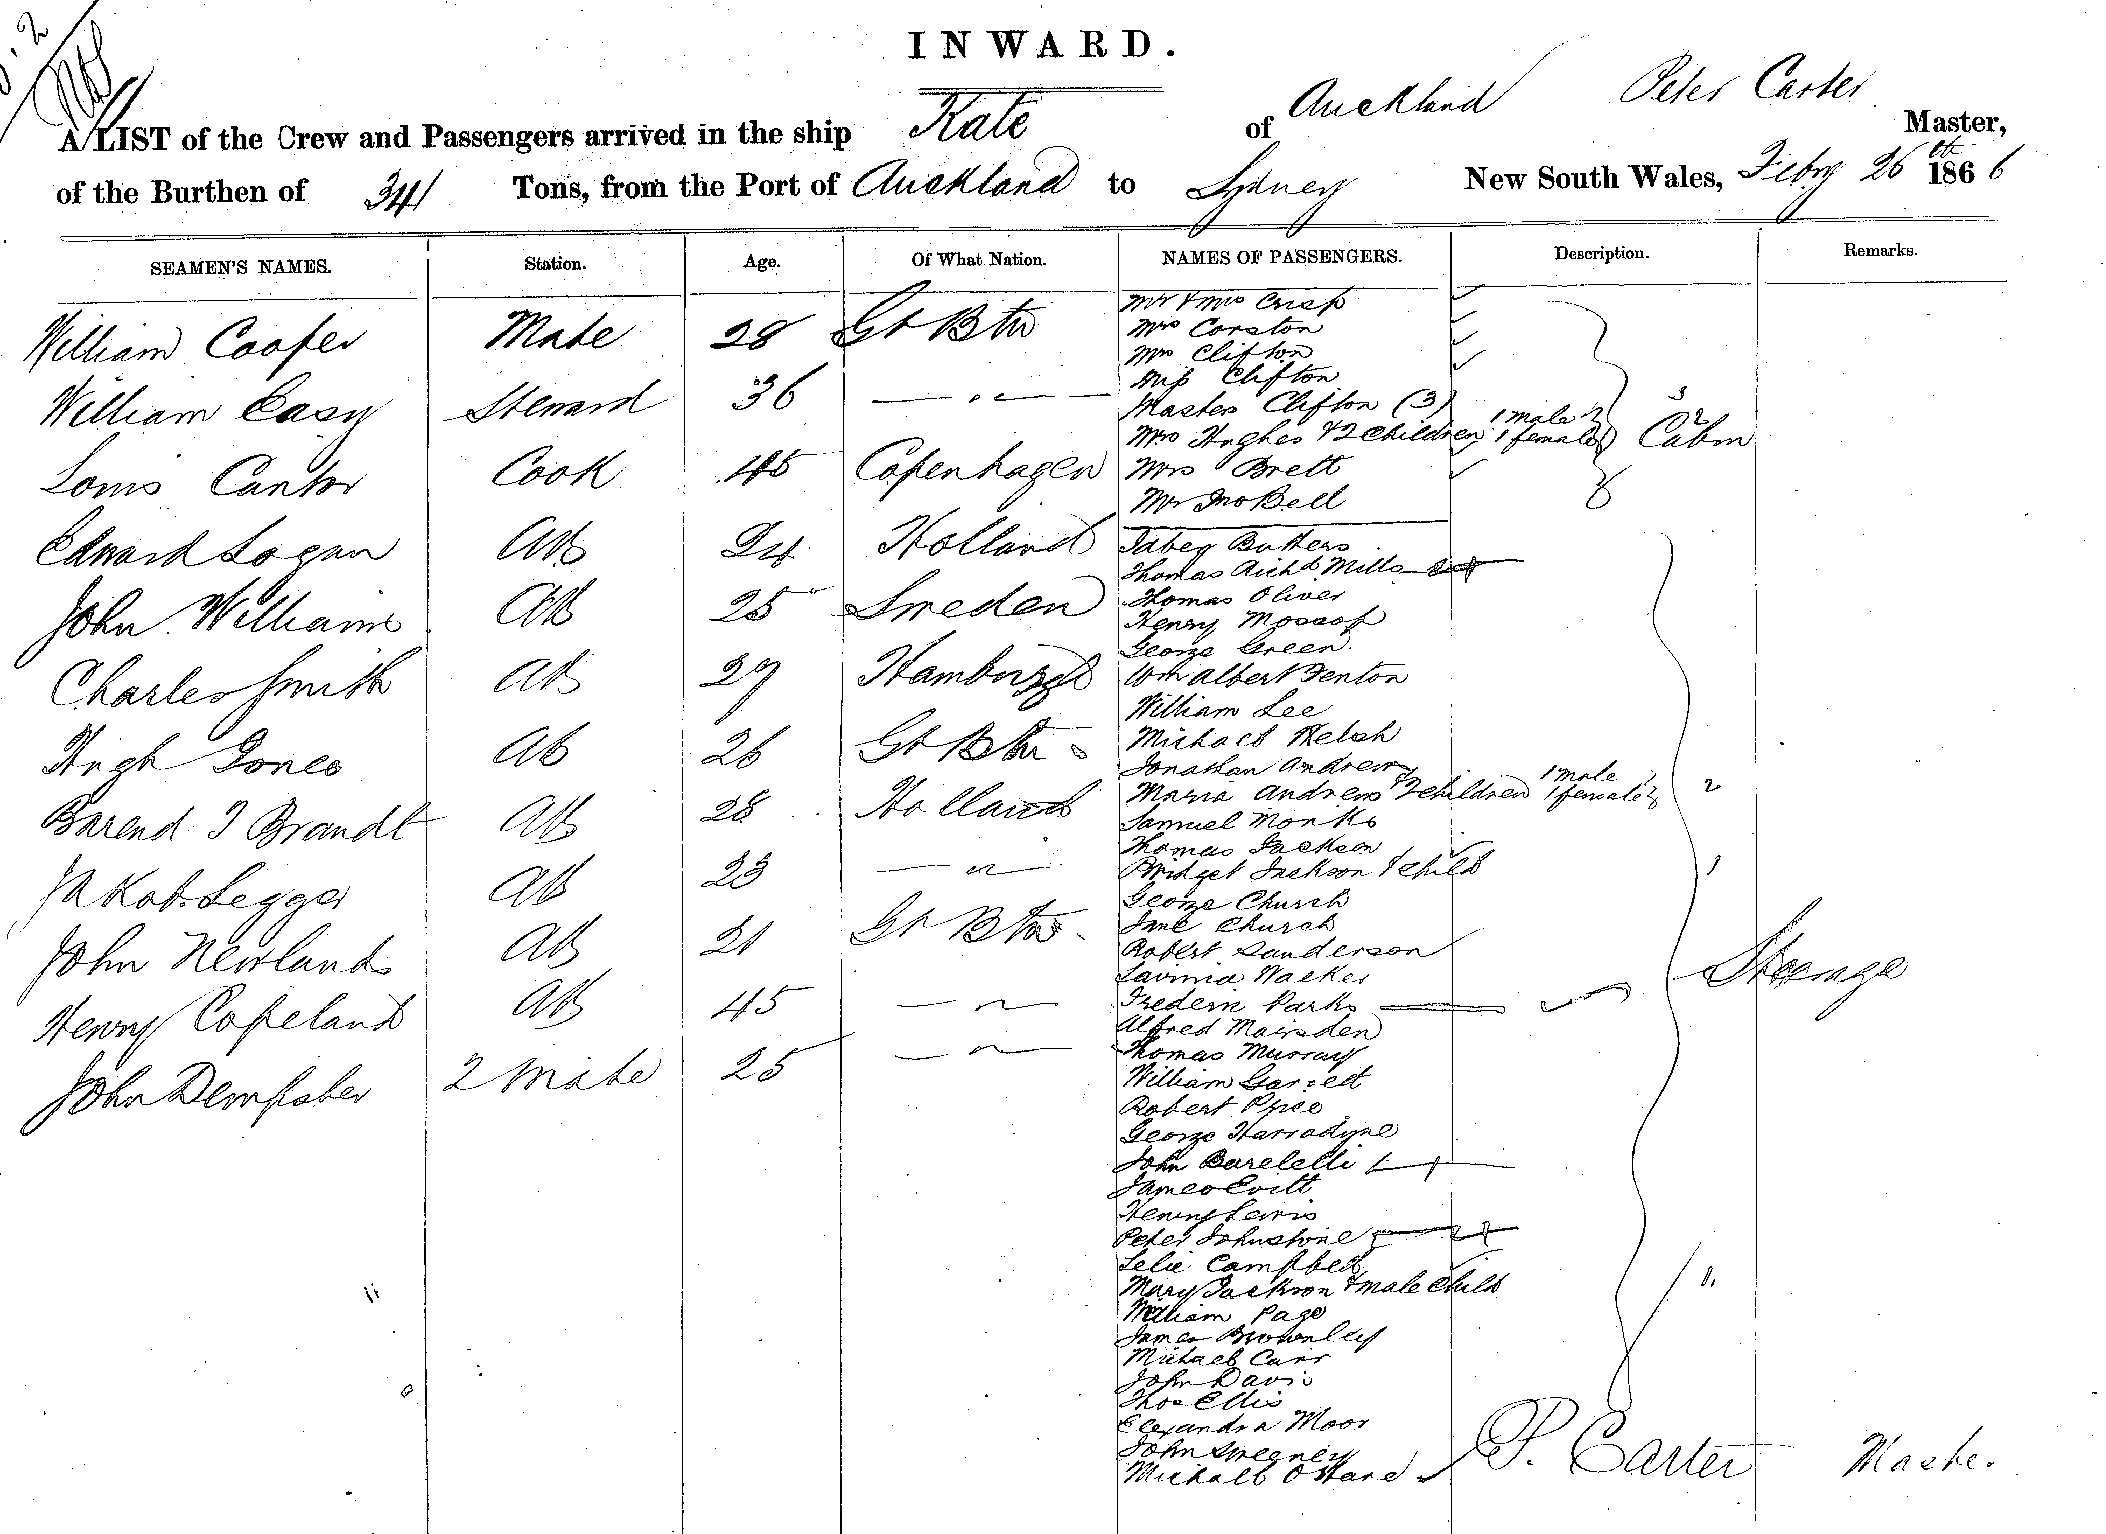 INWARD.
A LIST of the Crew and Passengers arrived in the ship Kate of Auckland Peter Carter Master,
of the Burthen of 341 Tons, from the Port of Auckland to Sydney New South Wales, Feby 26th 1866
SEAMEN'S NAMES. Station. Age. Of What Nation. NAMES OF PASSENGERS. Description. Remarks.
William Cooper Mate 28 Gt Btn
William Easy Steward 36 — " —
Louis Cantor Cook 45 Copenhagen
Edward Logan AB 24 Holland
John Williams AB 25 Sweden
Charles Smith AB 27 Hamburgh
Hugh Jones AB 26 Gt Btn
Barend J Brandt AB 28 Holland
Jakob Legger AB 23 — " —
John Newlands AB 21 Gt Btn
Henry Copeland AB 45 — " —
John Dempster 2 Mate 25 — " —
Mr & Mrs Crisp
Mrs Corston
Mrs Clifton
Miss Clifton
Master Clifton (3)
Mrs Hughes & 2 children 1 male 1 female 2 Cabin
Mrs Brett
Mr Jno Bell
Butters
Thomas Richd Mills
Thomas Oliver
Henry Mossop
George Green
Wm Albert Fenton
William Lee
Michael Welsh
Jonathan Andrews
Maria Andrews & 2 children 1 male 1 female 2
Samuel Monks
Thomas Jackson
Bridget Jackson & child 1
George Church
Jane Church
Robert Sanderson
Lavinia Walker
Frederic Parks
Alfred Marsden
Thomas Murray
William Garrett
Robert Price
George Harradyne
John
James Evitt
Henry Lewis
Peter Johnstone
Campbell
Mary Jackson & male child 1.
William Page
James Brownley
Michael Carr
John Davis
Thos Ellis
Moor
John Sweeney
Michael O'Hare
Steerage
P. Carter Master